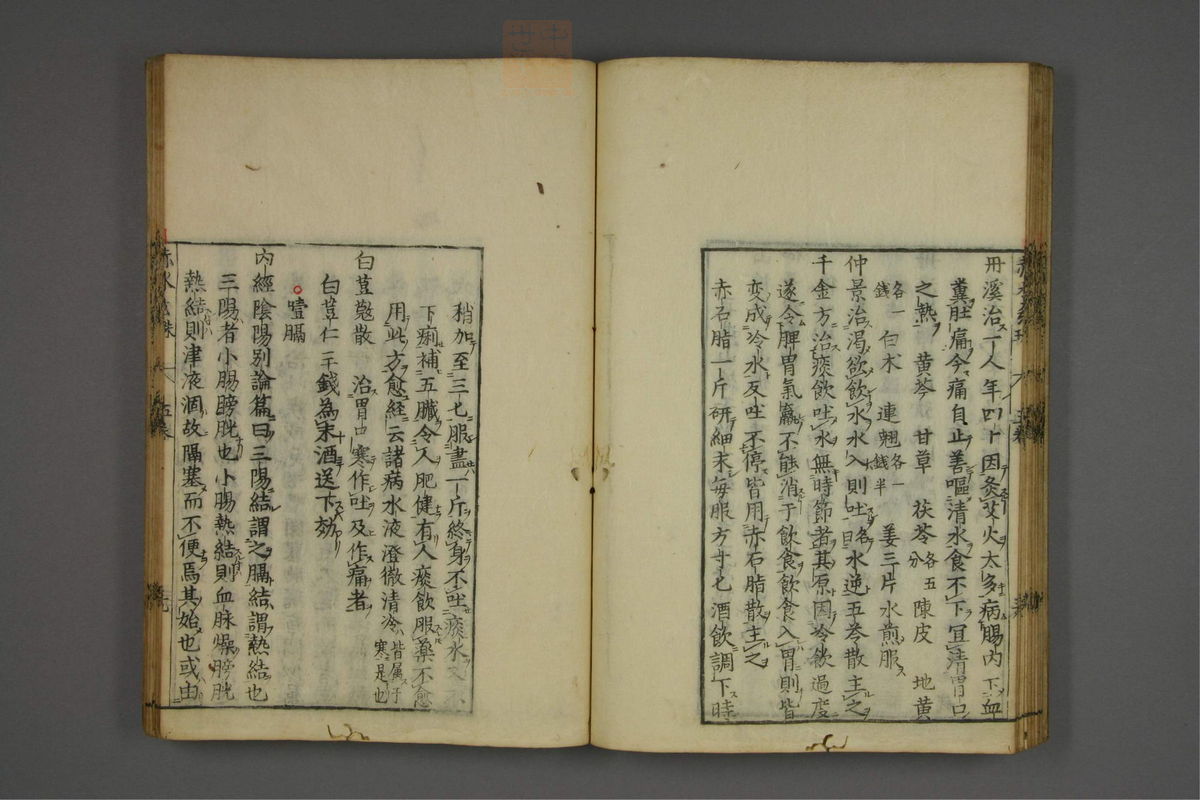 丹溪治一人年四十因灸艾火太多病腸內下血
糞肚痛今痛自止善嘔清水食不下冝清胃口
之熱 黃芩 甘草 茯苓各五分 陳皮 地黃
各一錢 白朮 連翹各一錢半 姜三片水煎服
仲景治渴欲飲水水入則吐名曰水逆五苓散主之
千金方治痰飲吐水無時節者其原因冷飲過度
遂令脾胃氣羸不能消于飲食飲食入胃則皆
变成冷水反吐不停皆用赤石脂散主之
赤石脂一斤研細末每服方寸匕酒飲調下時
稍加至三七服盡一斤終身不吐痰水又不
下痢補五臟令人肥健有人痰飲服藥不愈
用此方愈經云諸病水液澄徹清冷皆属于寒是也
白荳蔲散 治胃中寒作吐及作痛者
白荳仁三錢為末酒送下効
噎膈
內經陰陽别論篇曰三陽結謂之膈結謂熱結也
三陽者小腸膀胱也小腸熱結則血脉燥膀胱
熱結則津液涸故隔塞而不便焉其始也或由